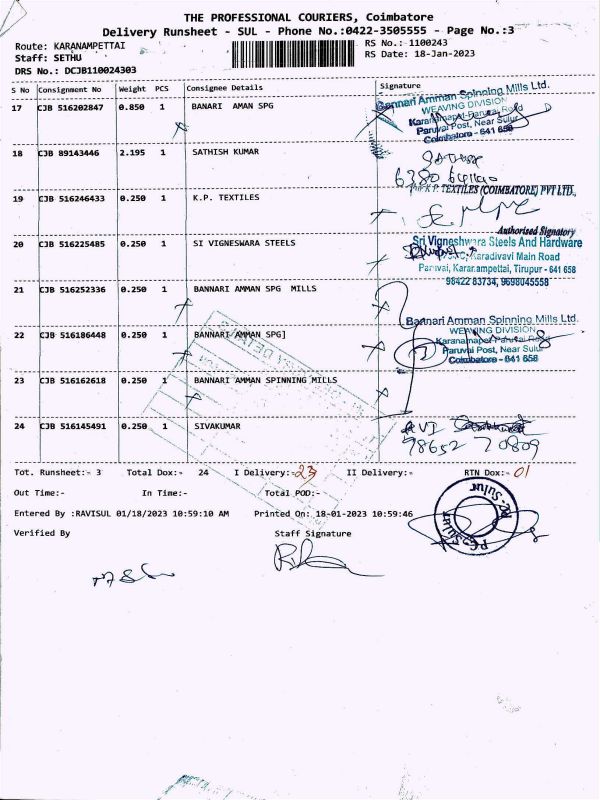 THE PROFESSIONAL COURIERS, Coimbatore
Delivery Runsheet - SUL - Phone No.:0422-3505555 - Page No.:3
Route: KARANAMPETTAI
RS No.: 1100243
Staff: SETHU
RS Date: 18-Jan-2023
DRS No.: DCJB110024303
S No Consignment No Weight PCS Consignee Details Signature
17 CJB 516202847 0.850 1 BANARI AMAN SPG
Bannari Amman Spinning Mills Ltd.
WEAVING DIVISION
Karanampet-Paruvai Road
Paruvai Post, Near Sulur
Coimbatore - 641 658
18 CJB 89143446 2.195 1 SATHISH KUMAR
6380
19 CJB 516246433 0.250 1 K.P. TEXTILES
K.P. TEXTILES (COIMBATORE) PVT LTD.,
Authorised Signatory
20 CJB 516225485 0.250 1 SI VIGNESWARA STEELS
Sri Vigneshwara Steels And Hardware
Karadivavi Main Road
Paruvai, Karanampettai, Tirupur - 641 658
98422 83734, 9698045558
21 CJB 516252336 0.250 1 BANNARI AMMAN SPG MILLS
22 CJB 516186448 0.250 1 BANNARI AMMAN SPG]
Bannari Amman Spinning Mills Ltd.
WEAVING DIVISION
Karanampet-Paruvai Road
Paruvai Post, Near Sulur
Coimbatore - 641 658
23 CJB 516162618 0.250 1 BANNARI AMMAN SPINNING MILLS
24 CJB 516145491 0.250 1 SIVAKUMAR
98652 70809
Tot. Runsheet:- 3 Total Dox:- 24 I Delivery:- 23 II Delivery:- RTN Dox:- 01
Out Time:- In Time:- Total POD:-
Entered By :RAVISUL 01/18/2023 10:59:10 AM Printed On: 18-01-2023 10:59:46
Verified By Staff Signature